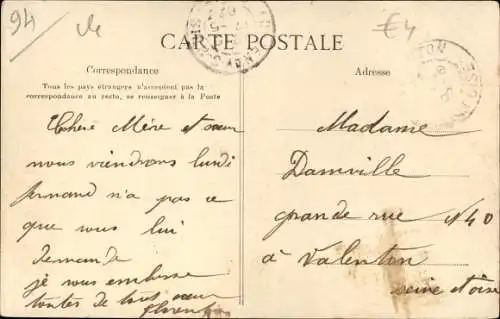 94
€4
CARTE POSTALE
Correspondance
Tous les pays étrangers n'acceptent pas la
correspondance au recto, se renseigner à la Poste
Chère Mère et sœur
nous viendrons lundi
fernand n'a pas ce
que vous lui
demande
je vous embrasse
toutes de tout cœur
Adresse
Madame
Damville
grande rue N 40
à Valenton
seine et oise